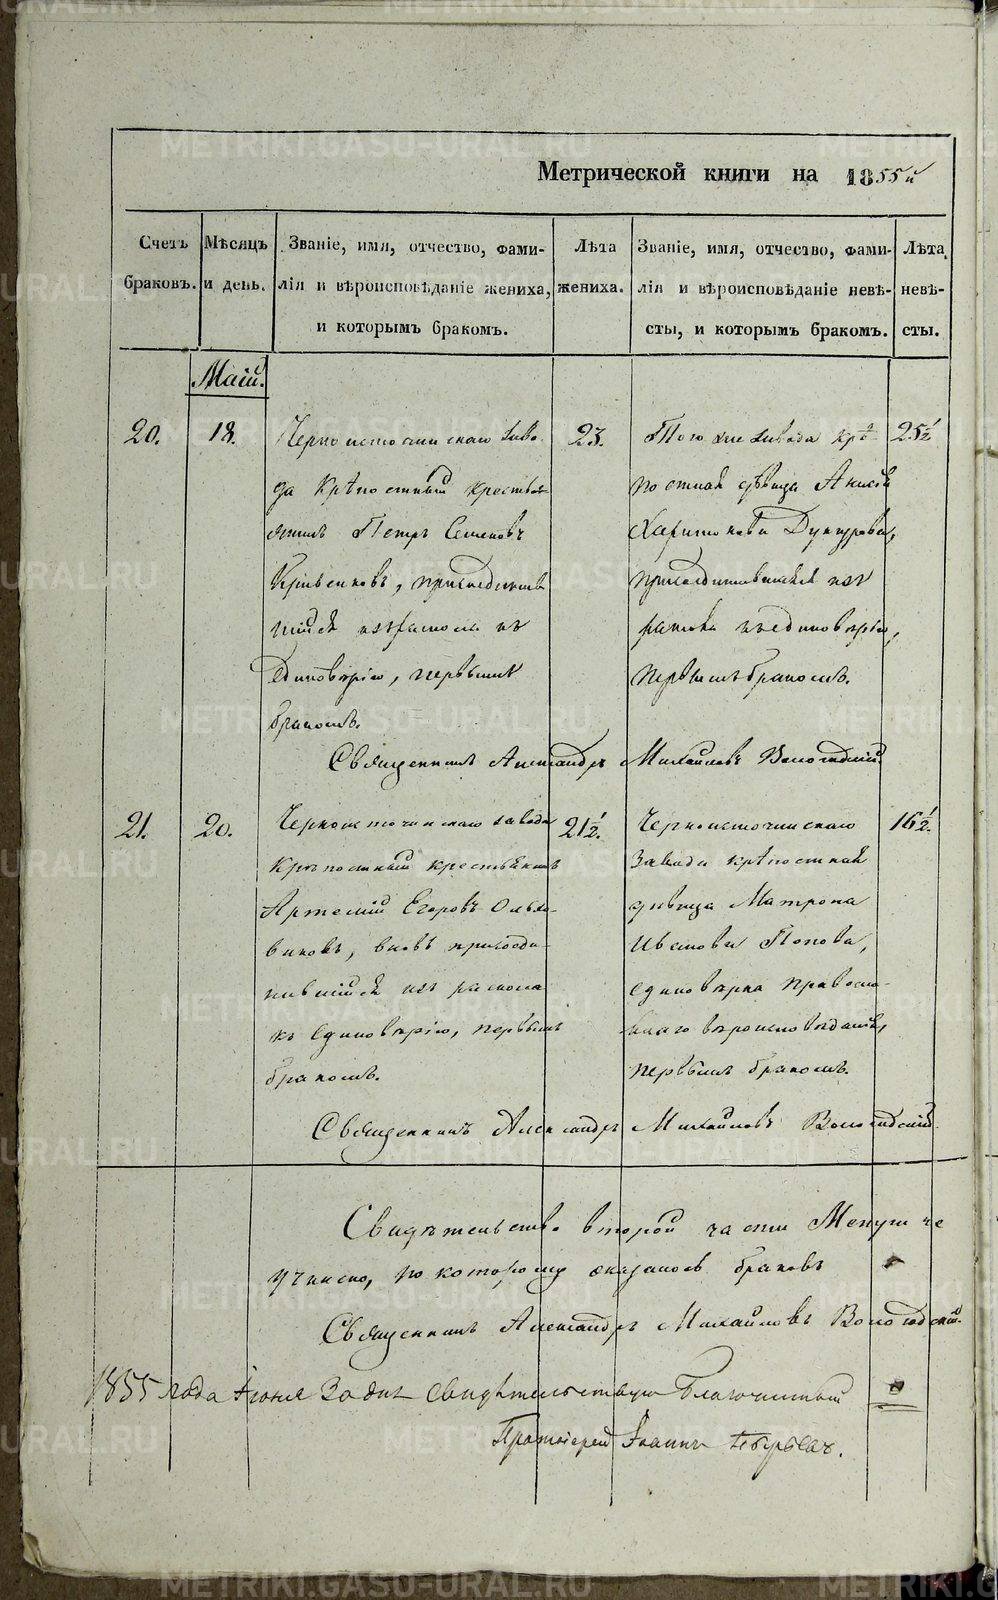 Метрической книги на 1855й
Счетъ браковъ.
Мѣсяцъ и день.
Званіе, имя, отчество, фами-
лія и вѣроисповѣданіе жениха,
и которымъ бракомъ.
Лѣта
жениха.
Званіе, имя, отчество, фами-
лія и вѣроисповѣданіе невѣ-
сты, и которымъ бракомъ.
Лѣта
невѣ-
сты.
Маій.
20.
18.
Черноисточинскаго заво-
да крѣпостный крестья-
нинъ Петръ Семеновъ
присоединив
шійся изъ раскола къ
единовѣрію, первымъ
бракомъ.
23.
Того же завода крѣ-
постная дѣвица Анисія
Харитонова
присоединившаяся изъ
раскола къ единовѣрію,
первымъ бракомъ.
25 1/2
Священникъ Александръ Михайловъ Вологодскій.
21.
20.
Черноисточинскаго завода
крѣпостный крестьянинъ
Артемій Егоровъ Ольхо-
виковъ, вновь присоеди-
нившійся изъ раскола
къ единовѣрію, первымъ
бракомъ.
21 1/2.
Черноисточинскаго
завода крѣпостная
дѣвица Матрона
Ивстова Попова,
единовѣрка правосла-
внаго вѣроисповѣданія,
первымъ бракомъ.
16 1/2.
Священникъ Александръ Михайловъ Вологодскій.
Свидѣтельство второй части
учинено, по которому оказалось браковъ
Священникъ Александръ Михайловъ Вологодскій.
1855 года Іюня 3 дня свидѣтельствую Благочинный
Протоіерей Іоаннъ
METRIKI.GASO-URAL.RU